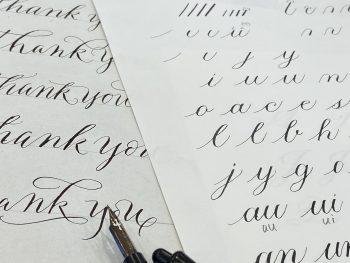 thank you
thank you
thank you
hank you
ank you
j y
i u w n
o a c e s
l l b h
j y g o
au ui
au ui
an un